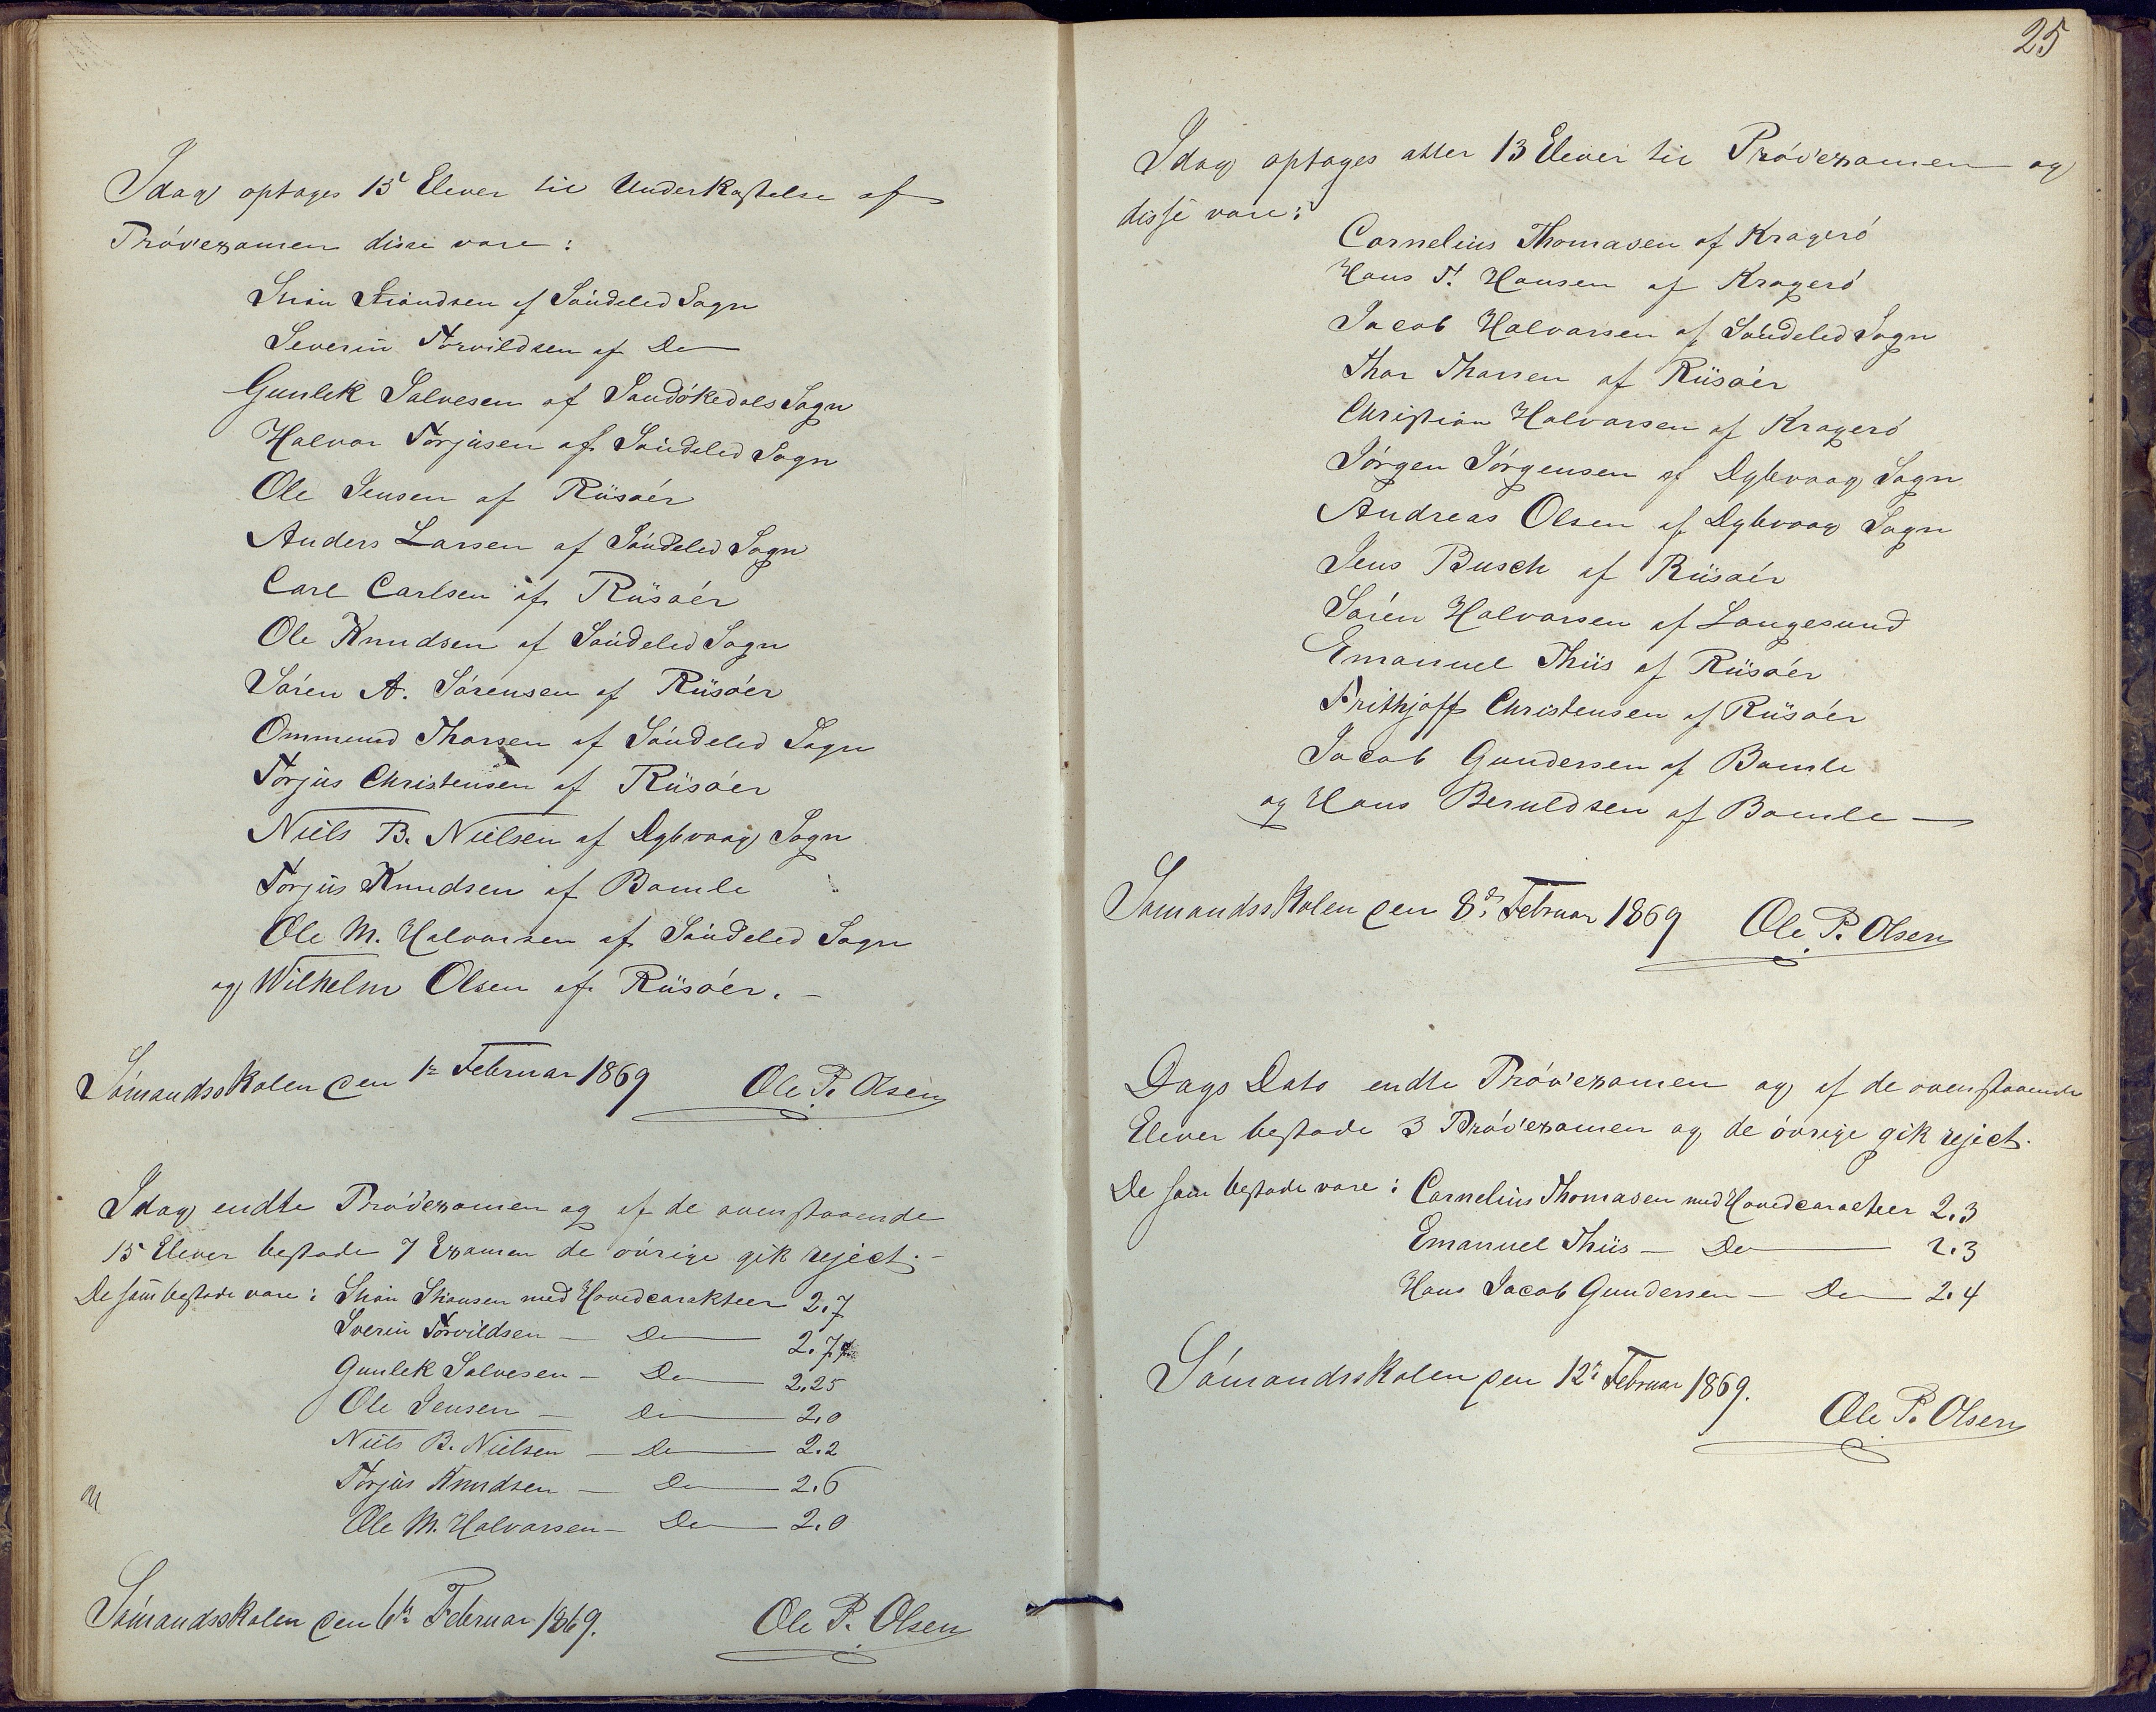 Idag optages 15 Elever til Underkastelse af
Pröveexamen disse vare:
Stian Stiandsen af Söndeled Sogn
Severin Torvildsen af Do
Gunlek Salvesen af Sandökedals Sogn
Halvor Torjusen af Söndeled Sogn
Ole Jensen af Riisöer
Anders Larsen af Söndeled Sogn
Carl Carlsen af Riisöer
Ole Knudsen af Söndeled Sogn
Sören A. Sörensen af Riisöer
Ommund Thorsen af Söndeled Sogn
Torjus Christensen af Riisöer
Niels B. Nielsen af Dybvaag Sogn
Torjus Knudsen af Bamle
Ole M. Halvorsen af Söndeled Sogn
og Wilhelm Olsen af Riisöer. –
Sömandsskolen den 1ste Februar 1869 Ole P. Olsen
Idag endte Pröveexamen og af de ovenstaaende
15 Elever bestode 7 Examen de övrige gik reject. –
De som bestode vare: Stian Stiansen med Hovedcarakteer 2.7
Sverin Torvildsen – Do 2.77
Gunlek Salvesen – Do 2,25
Ole Jensen – Do 2,0
Niels B. Nielsen – Do 2.2
Torjus Knudsen – Do 2.6
Ole M. Halvorsen – Do 2.0
Sömandsskolen den 6te Februar 1869. Ole P. Olsen
25
Idag optages atter 13 Elever til Pröveexamen og
disse vare:
Cornelius Thomasen af Kragerö
Hans T. Hansen af Kragerö
Jacob Halvorsen af Söndeled Sogn
Thor Thorsen af Riisöer
Christian Halvorsen af Kragerö
Jörgen Jörgensen af Dybvaag Sogn
Andreas Olsen af Dybvaag Sogn
Jens Busch af Riisöer
Sören Halvorsen af Langesund
Emanuel Thiis af Riisöer
Frithjoff Christensen af Riisöer
Jacob Gundersen af Bamle
og Hans Beruldsen af Bamle –
Sömandsskolen den 8de Februar 1869 Ole P. Olsen
Dags Dato endte Pröveexamen og af de ovenstaaende
Elever bestode 3 Pröveexamen og de övrige gik reject.
De som bestode vare: Cornelius Thomasen med Hovedcaracteer 2.3
Emanuel Thiis – Do 2.3
Hans Jacob Gundersen – Do 2.4
Sömandsskolen den 12te Februar 1869.
Ole P. Olsen